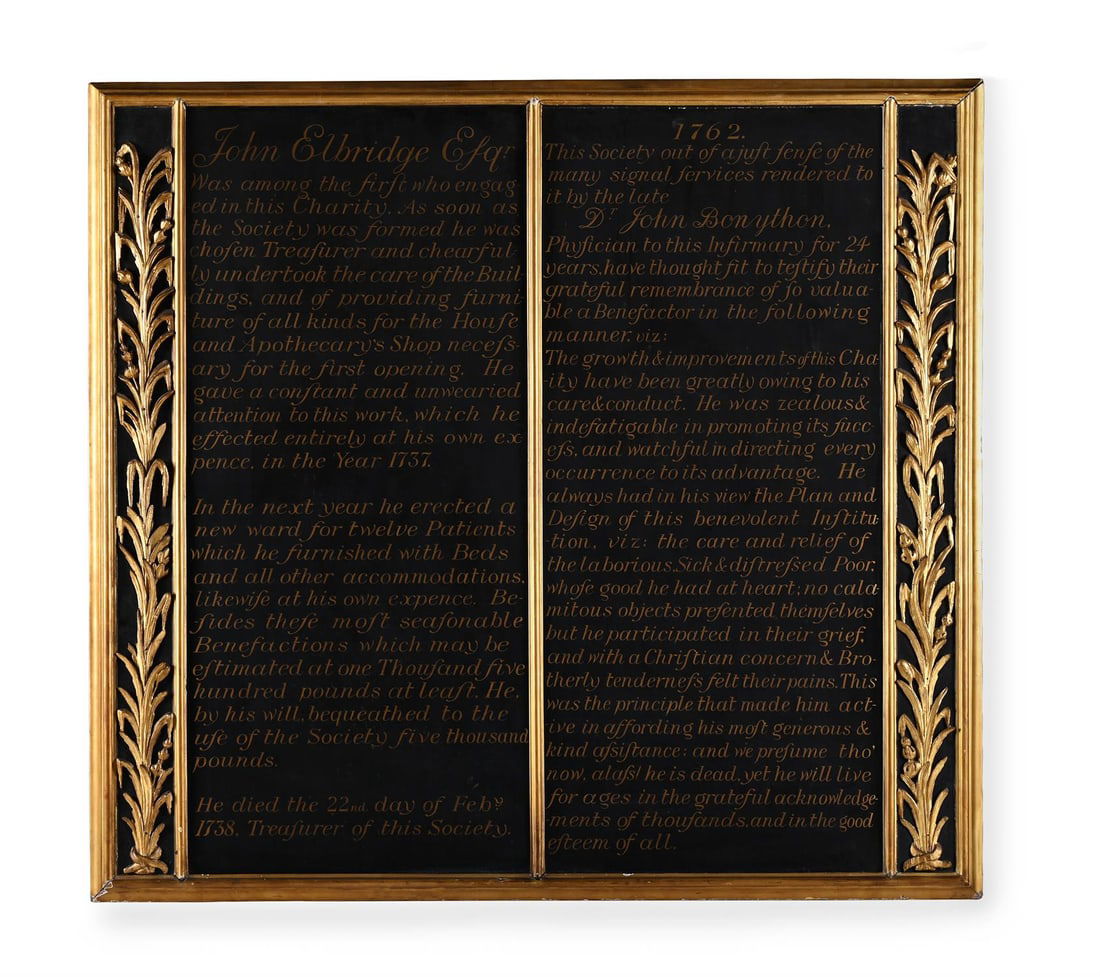 John Elbridge Eſqr
Was among the firſt who engag
ed in this Charity. As soon as
the Society was formed he was
choſen Treaſurer and chearful-
ly undertook the care of the Buil
dings, and of providing furni-
ture of all kinds for the Houſe
and Apothecary's Shop neceſs-
ary for the first opening. He
gave a conſtant and unwearied
attention to this work, which he
effected entirely at his own ex
pence, in the Year 1737.
In the next year he erected a
new ward for twelve Patients
which he furnished with Beds
and all other accommodations,
likewiſe at his own expence. Be-
ſides theſe moſt seaſonable
Benefactions which may be
eſtimated at one Thouſand five
hundred pounds at leaſt. He,
by his will, bequeathed to the
uſe of the Society five thousand
pounds.
He died the 22nd day of Feby.
1738. Treaſurer of this Society.
1762.
This Society out of a juſt ſenſe of the
many signal ſervices rendered to
it by the late
Dr John Bonython,
Phyſician to this Infirmary for 24
years, have thought fit to teſtify their
grateful remembrance of ſo valua-
ble a Benefactor in the following
manner. viz:
The growth & improvements of this Cha-
ity have been greatly owing to his
care & conduct. He was zealous &
indefatigable in promoting its ſucc-
eſs, and watchful in directing every
occurrence to its advantage. He
always had in his view the Plan and
Deſign of this benevolent Inſtitu-
-tion, viz: the care and relief of
the laborious, Sick & diſtreſsed Poor,
whoſe good he had at heart; no cala
mitous objects preſented themſelves
but he participated in their grief,
and with a Chriſtian concern & Bro-
therly tenderneſs felt their pains. This
was the principle that made him act-
ive in affording his moſt generous &
kind aſsiſtance: and we preſume tho'
now, alaſs! he is dead, yet he will live
for ages in the grateful acknowledge-
-ments of thouſands, and in the good
eſteem of all.